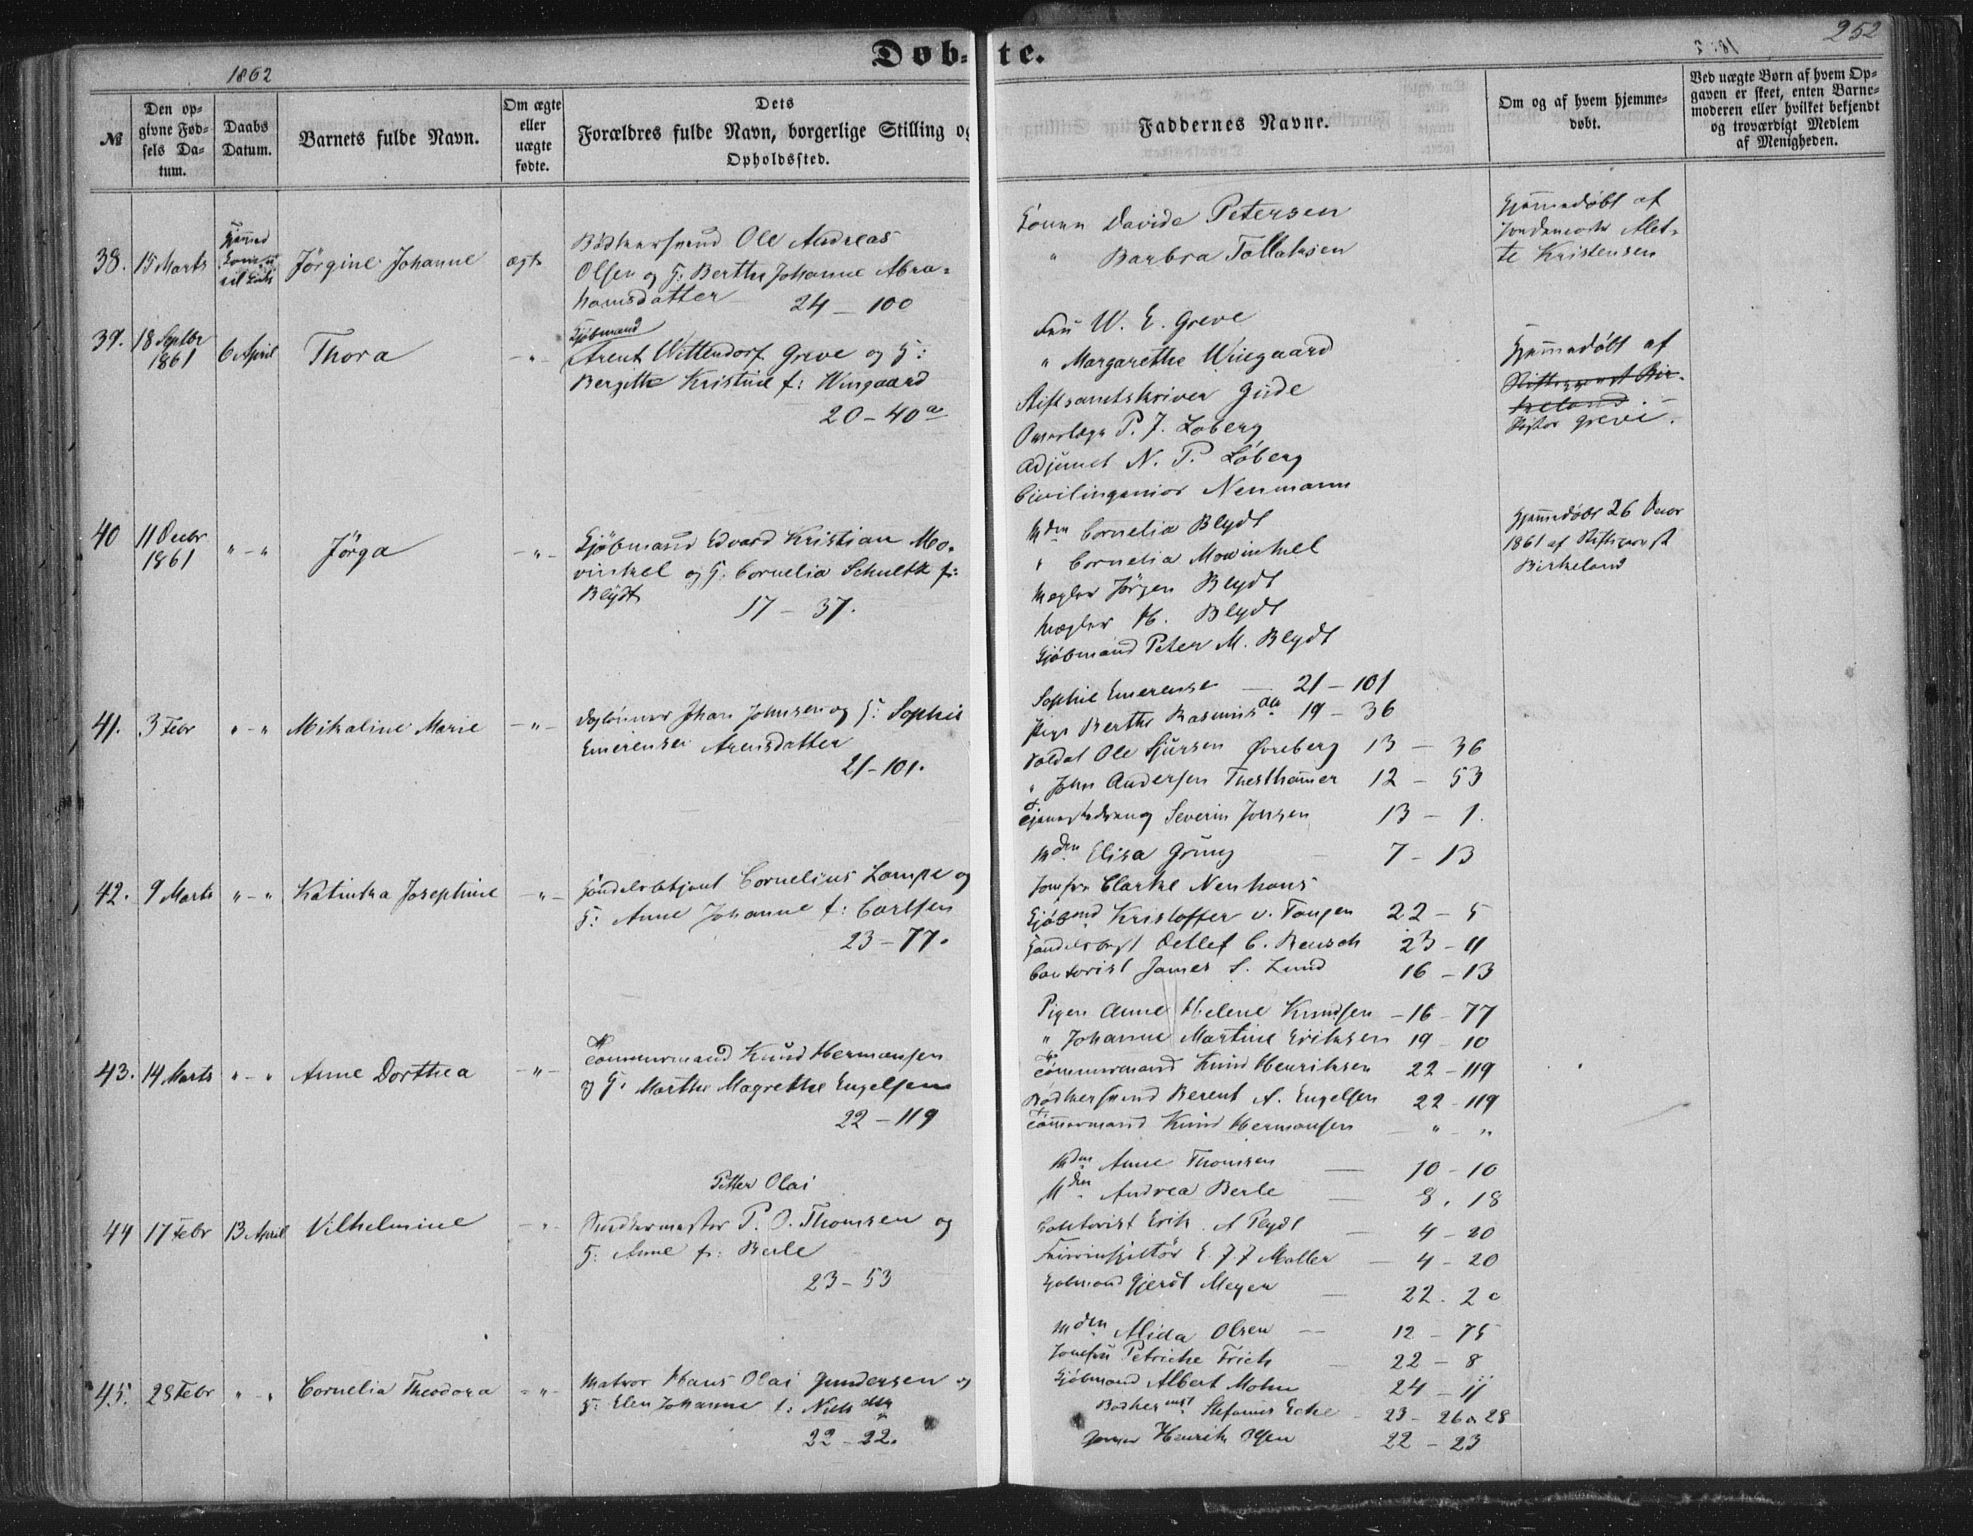 1862
Døb-
te.
252
№
Den op-
givne Fød-
sels Da-
tum.
Daabs
Datum.
Barnets fulde Navn.
Om ægte
eller
uægte
fødte.
Dets
Forældres fulde Navn, borgerlige Stilling og
Opholdssted.
Faddernes Navne.
Om og af hvem hjemme-
døbt.
Ved uægte Børn af hvem Op-
gaven er skeet, enten Barne-
moderen eller hvilket bekjendt
og troværdigt Medlem
af Menigheden.
38. 15 Marts
Jørgine Johanne
ægte
Bødkersvend Ole Andreas
Olsen og H. Berthe Johanne Abra-
hamsdatter 24 – 100
Konen Davida Petersen
" Barbra Tollaksen
Hjemmedøbt af
Jordemoder Alet-
te Kristensen
39. 18 Septbr
1861
6 April
Thora
– " –
Kjøbmand
Arent Wittendorf Greve og H:
Bergitte Kristine f: Wiingaard
20 – 40a
Fru W. E. Greve
" Margarethe Wiingaard
Stiftsamtskriver Gude
Overlæge P. J. Løberg
Adjunct N. P. Løberg
Civilingeniør Neumann
Hjemmedøbt af
Stiftsprovst Bir-
keland
Pastor Greve.
40 11 Decbr
1861
" – "
Jørga
– " –
Kjøbmand Edvard Kristian Mo-
winkel og H. Cornelia Schultz f:
Blydt
17 – 37.
Mdm Cornelia Blydt
" Cornelia Mowinkel
Mægler Jørgen Blydt
Mægler H. Blydt
Kjøbmand Peter M. Blydt
Hjemmedøbt 26 Decbr
1861 af Stiftsprovst
Birkeland
41. 3 Febr
" – "
Mikaline Marie
– " –
Dagleiner Johan Johnsen og H: Sophie
Emerense Arensdatter
21 – 101.
Sophie Emerense – 21 – 101
Pige Berthe Rasmusda 19 – 36
Soldat Ole Sjursen Øvreberg 13 – 36
" John Andersen Thesthammer 12 – 53
Tjenestedreng Severin Jonsen 13 – 1.
42. 9 Marts
" – "
Katinka Josephine
– " –
Handelsbetjent Cornelius Lampe og
H: Anne Johanne f: Carlsen
23 – 77.
Mdm Elisa Grung – 7 – 13
Jomfru Clarke Neuhaus
Kjøbmd Kristoffer v. Tangen 22 – 5
Handelsbgt Detlef C. Reusch 23 – 11
Contorist James S. Lund 16 – 13
43. 14 Marts
" – "
Anne Dorthea
– " –
Tømmermand Knud Hermansen
og H. Marthe Magrethe Engelsen
22 – 119
Pigen Anne Helene Knudsen – 16 – 77
" Johanne Martine Eriksen 19 – 10
Tømmermand Knud Henriksen 22 – 119
Bødkersvend Berent A. Engelsen 22 – 119
Tømmermand Knud Hermansen " – "
44 17 Febr
13 April
Vilhelmine
– " –
Petter Olai
Snedkermester P. O. Thomsen og
H. Anne f: Berle
23 – 53
Mdm Anne Thomsen – 10 – 10
Mdm Andrea Berle – 8. 18
Contorist Erik A Blydt – 4 – 20
E. J. J Møller – 4 – 20
Kjøbmand Gjerdt Meyer – 22. 2c
45. 28 Febr
" – "
Cornelia Theodora
– " –
Matros Hans Olai Gundersen og
H: Elen Johanne f: Nielsdttr
22 – 22.
Mdm Alida Olsen – 12 – 75
Jomfru Petricke Frich – 22 – 8
Kjøbmand Albert Mohn 24 – 11
Bødkermst Stefanus Ecke – 23 – 26 a 28
Henrik Olsen 22 – 23